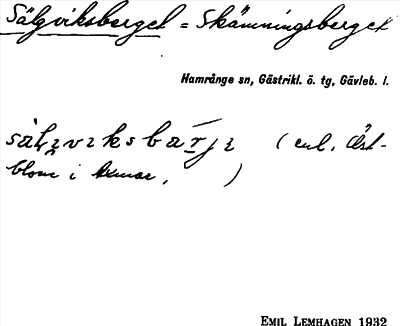 Sälgviksberget = Skämningsberget
Hamrånge sn, Gästrikl. ö. tg, Gävleb. l.
(enl. Öst-
blom i
)
EMIL LEMHAGEN 1932